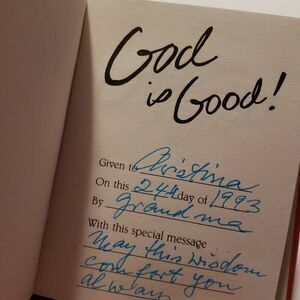 God
is Good!
Given to Christina
On this 24th day of 1993
By Grandma
With this special message
May this wisdom
comfort you
alway